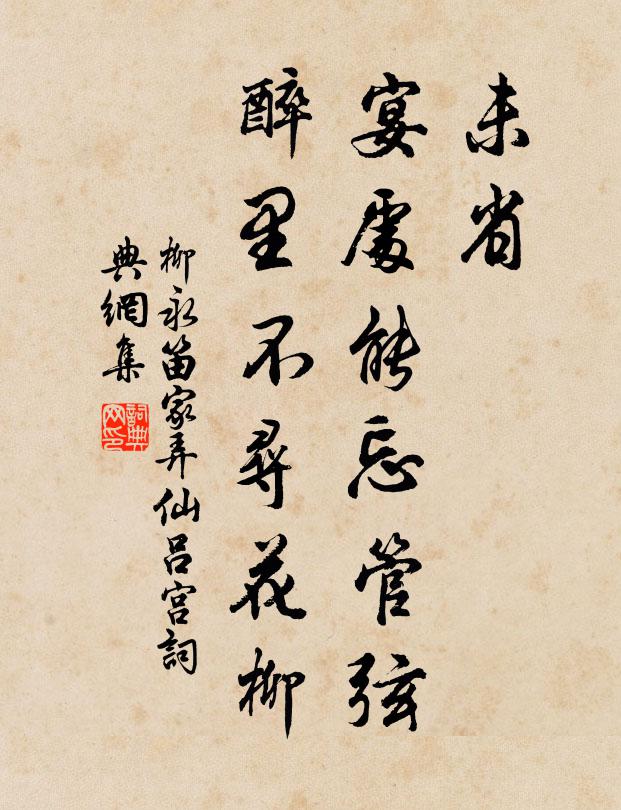 未省
宴處能忘管弦
醉里不尋花柳
柳永笛家弄仙呂宫詞
典網集
詞典网印